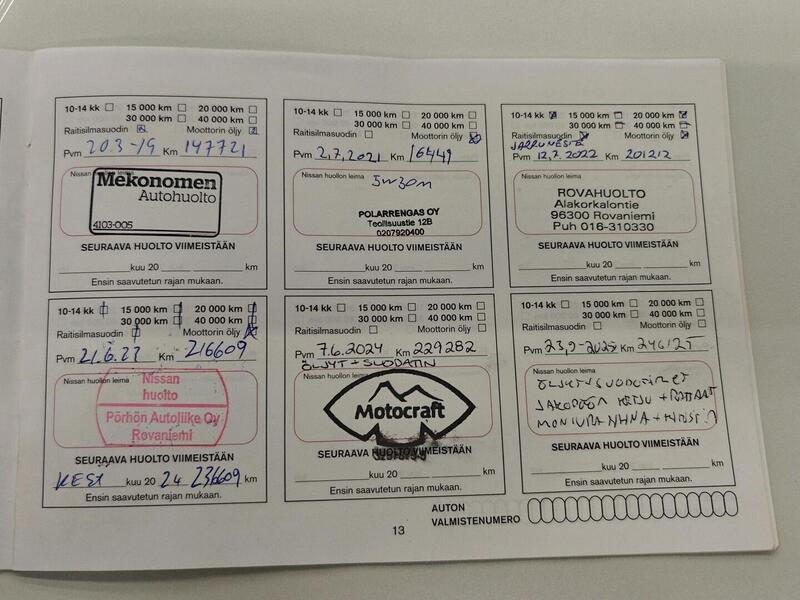 10-14 kk 15 000 km 20 000 km
30 000 km 40 000 km
Raitisilmasuodin Moottorin öljy
Pvm 20.3-19 Km 147721
Nissan huollon leima
Mekonomen
Autohuolto
4103-005
SEURAAVA HUOLTO VIIMEISTÄÄN
kuu 20 km
Ensin saavutetun rajan mukaan.
10-14 kk 15 000 km 20 000 km
30 000 km 40 000 km
Raitisilmasuodin Moottorin öljy
Pvm 2,7,2021 Km
Nissan huollon leima
POLARRENGAS OY
Teollisuustie 12B
0207920400
SEURAAVA HUOLTO VIIMEISTÄÄN
kuu 20 km
Ensin saavutetun rajan mukaan.
10-14 kk 15 000 km 20 000 km
30 000 km 40 000 km
Raitisilmasuodin Moottorin öljy
JARRUNESTE
Pvm 12,7,2022 Km 201212
Nissan huollon leima
ROVAHUOLTO
Alakorkalontie
96300 Rovaniemi
Puh 016-310330
SEURAAVA HUOLTO VIIMEISTÄÄN
kuu 20 km
Ensin saavutetun rajan mukaan.
10-14 kk 15 000 km 20 000 km
30 000 km 40 000 km
Raitisilmasuodin Moottorin öljy
Pvm Km 216609
Nissan huollon leima
Nissan
huolto
Pörhön Autoliike Oy
Rovaniemi
SEURAAVA HUOLTO VIIMEISTÄÄN
kuu 20 24 236609 km
Ensin saavutetun rajan mukaan.
10-14 kk 15 000 km 20 000 km
30 000 km 40 000 km
Raitisilmasuodin Moottorin öljy
Pvm 7.6.2024 Km 229282
ÖLJYT + SUODATIN
Nissan huollon leima
Motocraft
SEURAAVA HUOLTO VIIMEISTÄÄN
kuu 20 km
Ensin saavutetun rajan mukaan.
10-14 kk 15 000 km 20 000 km
30 000 km 40 000 km
Raitisilmasuodin Moottorin öljy
Pvm Km
Nissan huollon leima
SEURAAVA HUOLTO VIIMEISTÄÄN
kuu 20 km
Ensin saavutetun rajan mukaan.
AUTON
VALMISTENUMERO
13